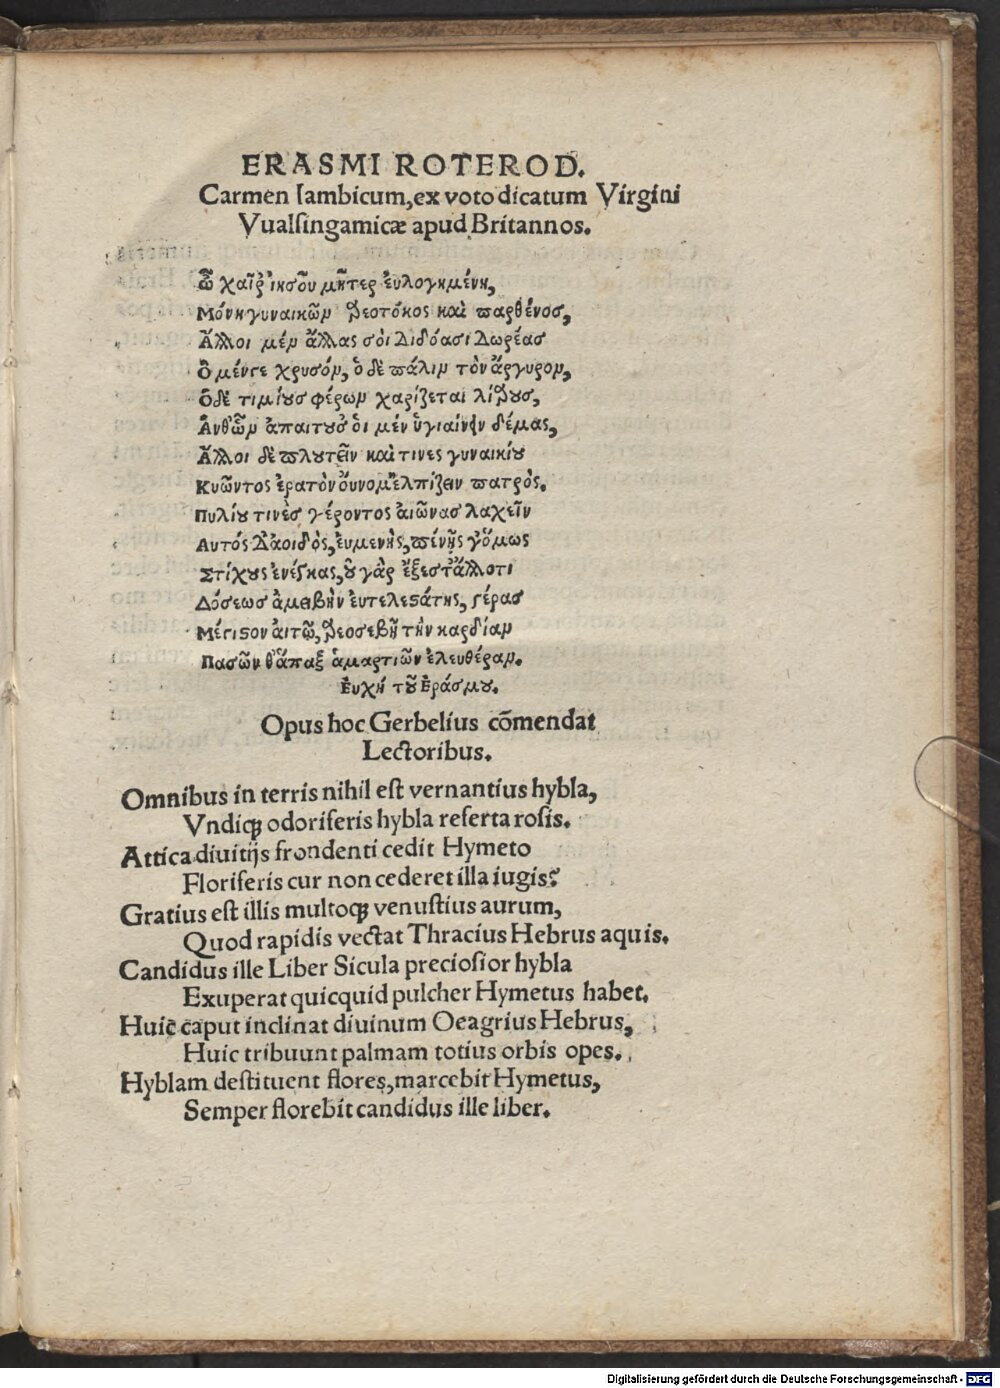 ERASMI ROTEROD.
Carmen Iambicum, ex voto dicatum Virgini
Vualsingamicæ apud Britannos.
ὦ χαῖρ' ἰησοῦ μῆτερ ἐυλογημένη,
Μόνη γυναικῶν θεοτόκος καὶ παρθένος,
Ἄλλοι μέν ἄλλας σὸι διδόασι δωρέας
Ὃ μέν γε χρυσόν, ὁ δὲ πάλιν τὸν ἄργυρον,
Ὃδὲ τιμίους φέρων χαρίζεται λίθους,
Ἀνθ' ὧν ἀπαιτοῦσ' ὁι μέν ὑγιαίνειν δέμας,
Ἄλλοι δὲ πλουτεῖν καὶ τινες γυναικίου
Κυῶντος ἐρατὸν οὔνομ' ἐλπίζειν πατρὸς.
Πυλίου τινὲς γέροντος ἀιῶνας λαχεῖν
Αυτός δ' ἀοιδὸς, ἐυμενὴς, πένης γ' ὅμως
Στίχους ἐνέγκας, οὐ γὰρ ἔξεστ' ἄλλοτι
Δόσεως ἀμειβὴν ἐυτελεστάτης, γέρας
Μέγιστον αιτῶ, θεοσεβῆ τὴν καρδίαν
Πασῶν θ' ἅπαξ ἁμαρτιῶν ἐλευθέραν.
Ἐυχή τοῦ Ἐράσμου.
Opus hoc Gerbelius cōmendat
Lectoribus.
Omnibus in terris nihil est vernantius hybla,
Vndiq; odoriferis hybla referta rosis.
Attica diuitijs frondenti cedit Hymeto
Floriferis cur non cederet illa iugis?
Gratius est illis multoq; venustius aurum,
Quod rapidis vectat Thracius Hebrus aquis.
Candidus ille Liber Sicula preciosior hybla
Exuperat quicquid pulcher Hymetus habet.
Huic caput inclinat diuinum Oeagrius Hebrus,
Huic tribuunt palmam totius orbis opes.
Hyblam destituent flores, marcebit Hymetus,
Semper florebit candidus ille liber.
Digitalisierung gefördert durch die Deutsche Forschungsgemeinschaft - DFG